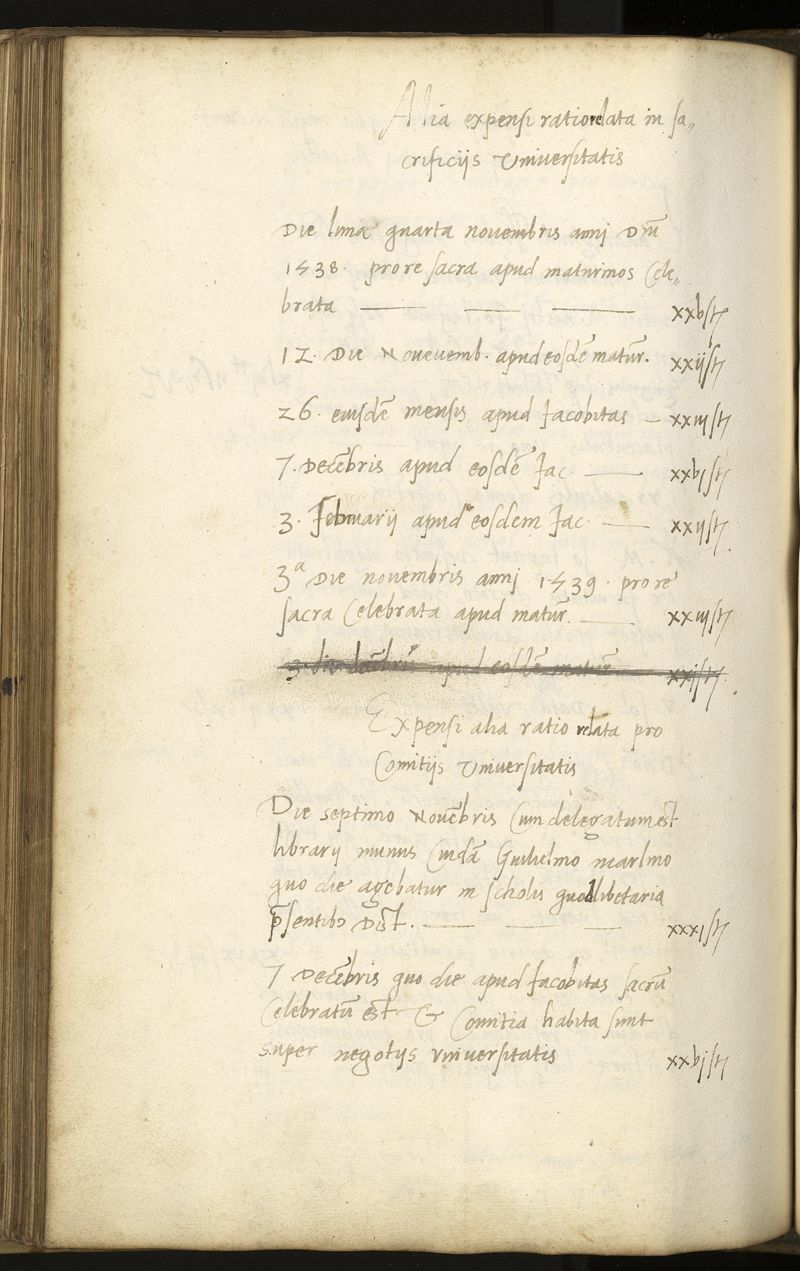 Alia expensi ratio relata in sa„
crificijs Universitatis
Die lunæ quarta novembris anni Dnĩ
1538. pro re sacra apud maturinos Cele„
brata — — — xxvβ tz
12. Die Novuemb. apud eosdẽ matur̃. xxijβ tz
26. eiusdẽ mensis apud Jacobitas — xxiijβ tz
7. Decẽbris apud eosdẽ Jac. — xxvjβ tz
3. Februarij apud eosdem Jac. — xxijβ tz
3ª Die novembris anni 1539. pro re
sacra Celebrata apud matur̃. — xxiijβ tz
3. die decẽbris apud eosdẽ matur̃ xxjβ tz.
Expensi alia ratio relata pro
Comitijs Universitatis
Die septimo Novẽbris Cum delegatum est
librarij munus Cuidã Guilielmo
quo die agebatur in scholis quodlibetaria
p̃sentibꝰ Dist. — — — xxxiβ tz
7 Decẽbris quo die apud Jacobitas sacrũ
Celebratũ est & Comitia habita sunt
super negotijs universitatis xxvjβ tz